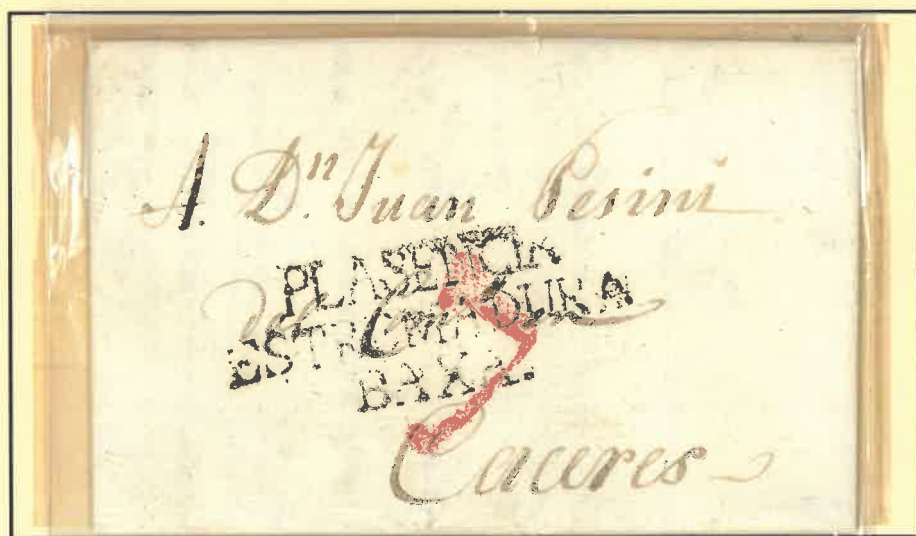 A. D.n Juan Pesini
PLASENCIA
ESTREMADURA
BAXA.
Caceres